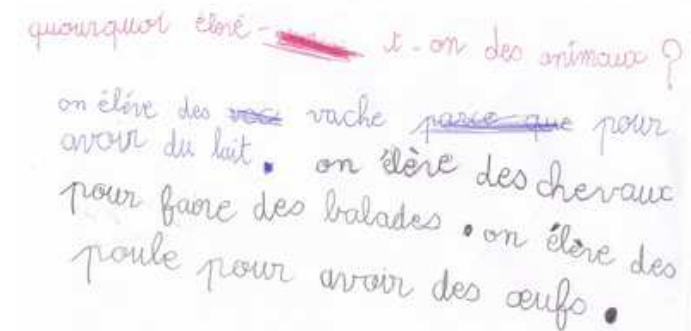 quourquoi élevé- t-on des animaux ?
on élève des vache pour
avoir du lait. on élève des chevaux
pour faire des balades. on élève des
poule pour avoir des œufs.